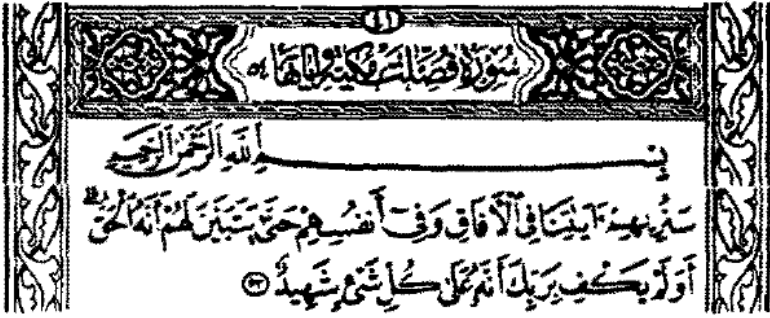 (٤١)
سُورَةُ فُصِّلَتْ مَكِّيَّة وَآيَاتُهَا ٥٤
بِسْمِ ٱللَّهِ ٱلرَّحْمَٰنِ ٱلرَّحِيمِ
سَنُرِيهِمْ ءَايَٰتِنَا فِى ٱلْءَافَاقِ وَفِىٓ أَنفُسِهِمْ حَتَّىٰ يَتَبَيَّنَ لَهُمْ أَنَّهُ ٱلْحَقُّ ۗ
أَوَلَمْ يَكْفِ بِرَبِّكَ أَنَّهُۥ عَلَىٰ كُلِّ شَىْءٍ شَهِيدٌ